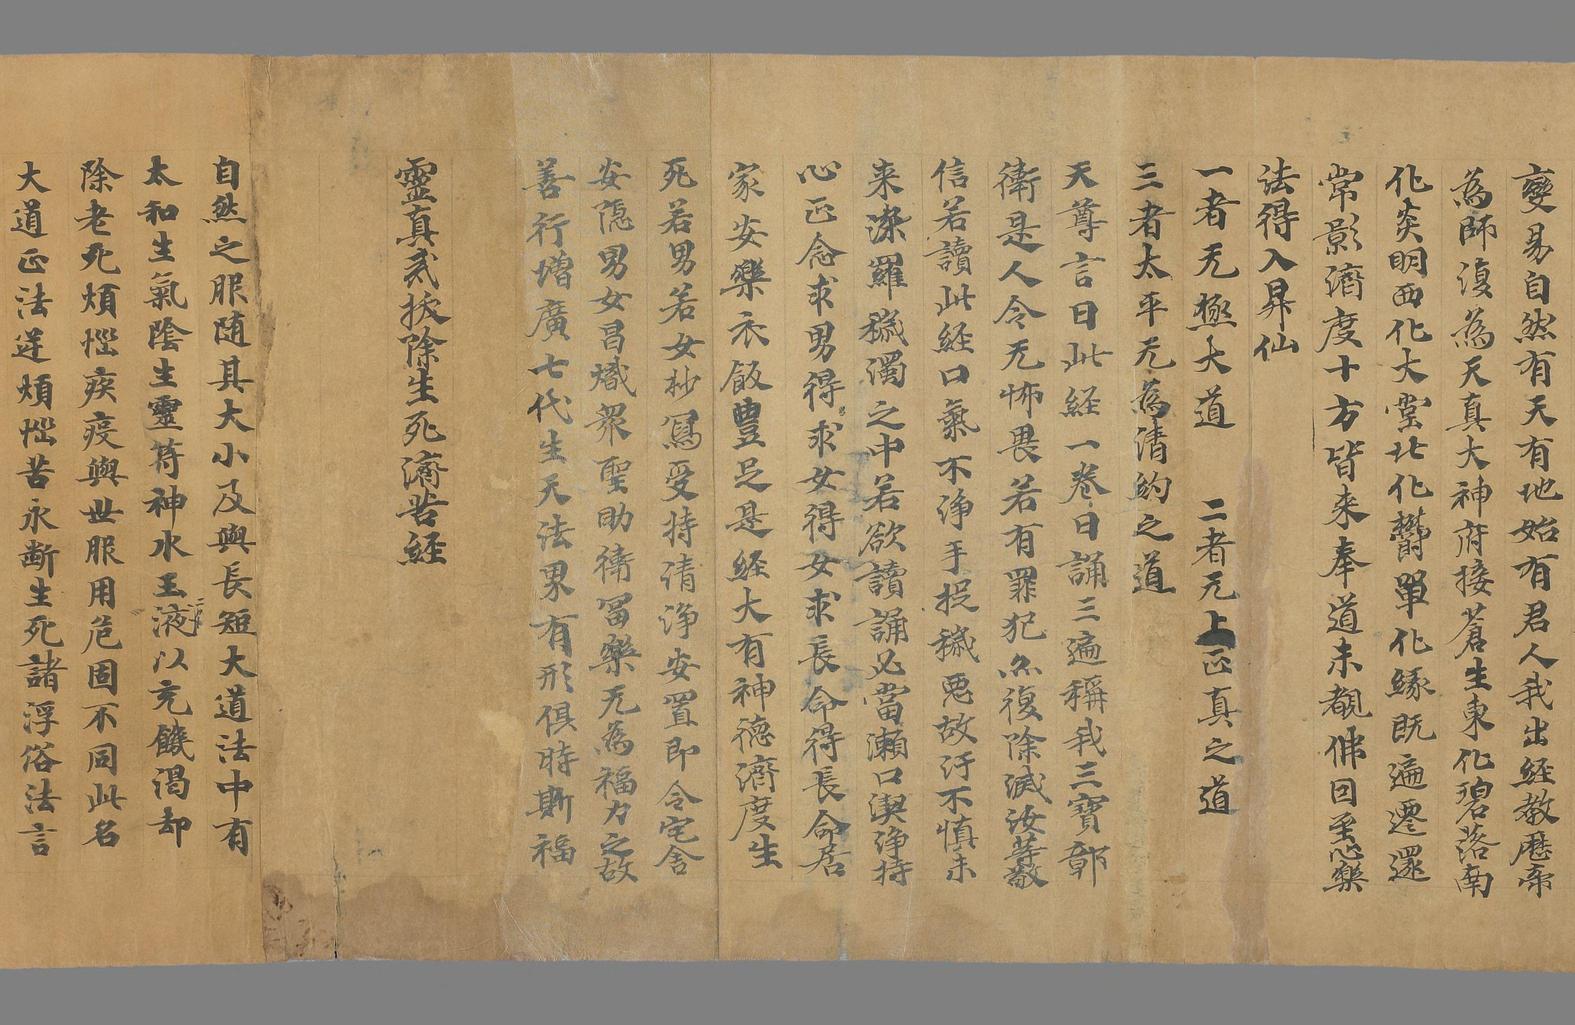 變易自然有天有地始有君人我出經教歷帝
為師復為天真大神府接蒼生東化碧落南
化炎明西化大堂北化欝單化緣既遍遷還
常影濟度十方皆来奉道未覩佛回至心樂
法得入昇仙
一者无極大道　二者无上正真之道
三者太平无為清約之道
天尊言曰此経一卷日誦三遍稱我三寶鄣
衛是人令无怖畏若有罪犯亦復除滅汝等敬
信若讀此経口氣不浄手捉穢惡故汙不慎未
来深羅穢濁之中若欲讀誦必當漱口潔浄持
心正念求男得求女得女求長命得長命居
家安樂衣飯豊足是経大有神德濟度生
死若男若女抄寫受持清浄安置即令宅舍
安隱男女昌熾衆聖助衛冨樂无為福力之故
善行增廣七代生天法界有形俱時斯福
靈真戒拔除生死濟苦経
自然之服随其大小及與長短大道法中有
太和生氣陰生靈符神水玉液以充饑渴却
除老死煩惱疾疫與世服用危固不同此名
大道正法逆煩惱苦永斷生死諸浮俗法言